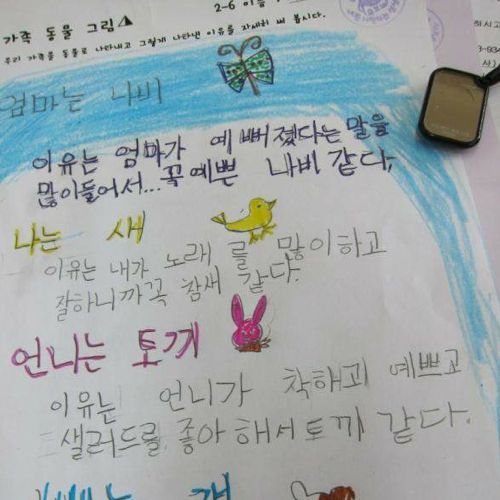 가족 동물 그림
2-6 이름
우리 가족을 동물로 나타내고 그렇게 나타낸 이유를 자세히 써 봅시다.
엄마는 나비
이유는 엄마가 예뻐졌다는 말을
많이들어서...꼭 예쁜 나비 같다.
나는 새
이유는 내가 노래를 많이하고
잘하니까꼭 참새 같다.
언니는 토끼
이유는 언니가 착해고 예쁘고
샐러드를 좋아해서토끼 같다.